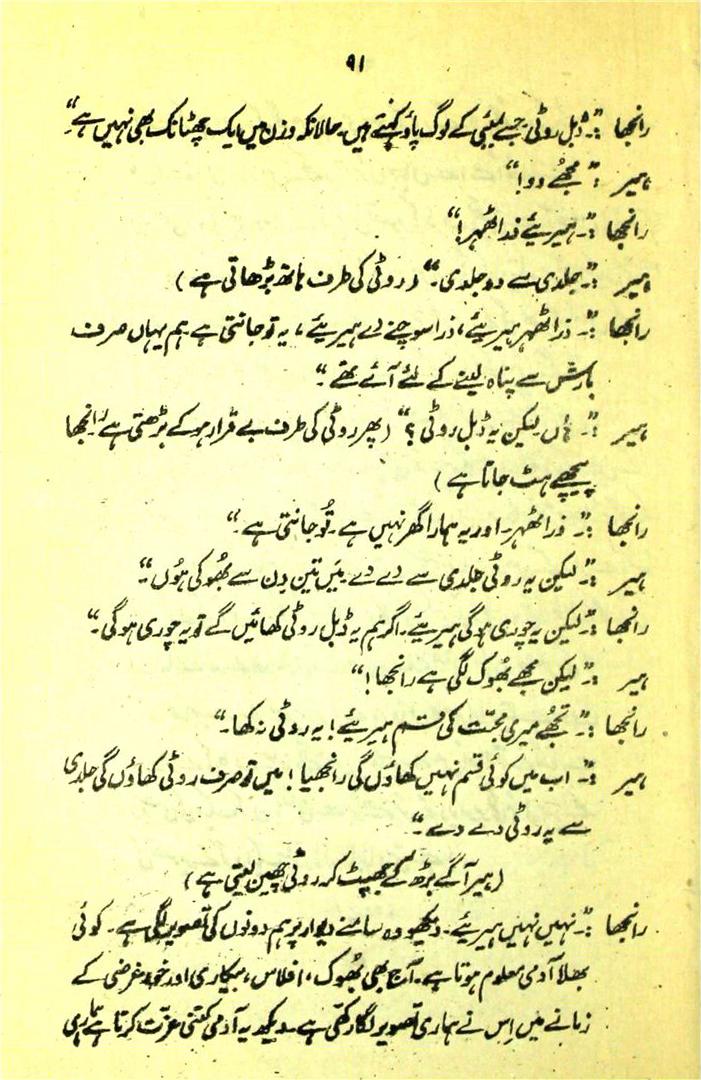 ۹۱
رانجھا :۔ ”ڈبل روٹی جسے بمبئی کے لوگ پاؤ کہتے ہیں۔ حالانکہ وزن میں ایک چھٹانک بھی نہیں ہے۔“
ہیر :۔ ”مجھے دو!“
رانجھا :۔ ”ہیریئے ذرا ٹھہر!“
ہیر :۔ ”جلدی سے دو جلدی۔“ (روٹی کی طرف ہاتھ بڑھاتی ہے)
رانجھا :۔ ”ذرا ٹھہر ہیریئے، ذرا سوچنے دے ہیریئے، یہ تو جانتی ہے ہم یہاں صرف
بارش سے پناہ لینے کے لئے آئے تھے۔“
ہیر :۔ ”ہاں لیکن یہ ڈبل روٹی؟“ (پھر روٹی کی طرف بے قرار ہو کے بڑھتی ہے رانجھا
پیچھے ہٹ جاتا ہے)
رانجھا :۔ ”ذرا ٹھہر۔ اور یہ ہمارا گھر نہیں ہے۔ تُو جانتی ہے۔“
ہیر :۔ ”لیکن یہ روٹی جلدی سے دے دے۔ میَں تین دِن سے بھُوکی ہُوں۔“
رانجھا :۔ ”لیکن یہ چوری ہو گی ہیریئے۔ اگر ہم یہ ڈبل روٹی کھائیں گے تو یہ چوری ہو گی۔“
ہیر :۔ ”لیکن مجھے بھُوک لگی ہے رانجھا!“
رانجھا :۔ ”تجھُے میری محبّت کی قسم ہیریئے! یہ روٹی نہ کھا۔“
ہیر :۔ ”اب میں کوئی قسم نہیں کھاؤں گی رانجھیا! میں تو صرف روٹی کھاؤں گی جلدی
سے یہ روٹی دے دے۔“
(ہیر آگے بڑھ کے جھپٹ کر روٹی چھین لیتی ہے)
رانجھا :۔ ”نہیں نہیں ہیریئے۔ دیکھو وہ سامنے دیوار پر ہم دونوں کی تصویر لگی ہے۔ کوئی
بھلا آدمی معلوم ہوتا ہے۔ آج بھی بھُوک، افلاس، بیکاری اور خود غرضی کے
زمانے میں اِس نے ہماری تصویر لگا رکھی ہے۔ دیکھ یہ آدمی کتنی عزّت کرتا ہے ہماری